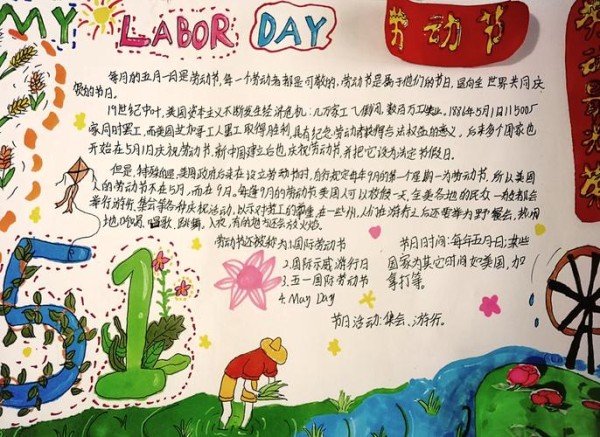 MY LABOR DAY
劳动节
劳动最光荣
每月的五月一日是劳动节,每一个劳动者都是可敬的,劳动节是属于他们的节日,是向全世界共同庆
祝的节日。
19世纪中叶,美国资本主义不断发生经济危机:几万家工厂倒闭,数百万工失业,1886年5月1日11500厂
家同时罢工,而美国芝加哥工人罢工取得胜利,具有纪念劳动者获得合法权益的意义,后来多个国家也
开始在5月1日庆祝劳动节,新中国建立后也庆祝劳动节,并把它设为法定节假日。
但是,特殊的是,美国政府后来在设立劳动节时,自行规定每年9月的第一个星期一为劳动节,所以美国
人的劳动节不在5月,而在9月。每逢9月的劳动节美国人可以放假一天,全美各地的民众一般都会
举行游行、集会等各种庆祝活动,以示对劳工的尊重,在一些州,人们在游行之后还要举办野餐会,热闹
地吃喝、唱歌、跳舞,入夜,有的地方还会放火焰。
劳动节还被称为:1.国际劳动节
2.国际示威游行日
3.五一国际劳动节
4. May Day
节日时间:每年五月日;某些
国家为其它时间如美国,加
拿打等。
节日活动:集会、游乐。
51